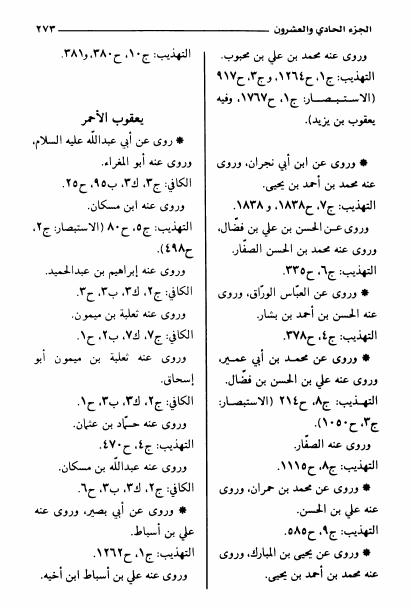 الجزء الحادي والعشرون ٢٧٣
وروى عنه محمد بن علي بن محبوب.
التهذيب: ج١، ح١٢٦٤، و ج٣، ح٩١٧
(الاستبصار: ج١، ح١٧٦٧، وفيه
يعقوب بن يزيد).
* وروى عن ابن أبي نجران، وروى
عنه محمد بن أحمد بن يحيى.
التهذيب: ج٧، ح١٨٣٨، و ١٨٣٨.
وروى عن الحسن بن علي بن فضّال،
وروى عنه محمد بن الحسن الصفّار.
التهذيب: ج٦، ح٣٣٥.
* وروى عن العبّاس الورّاق، وروى
عنه الحسن بن أحمد بن بشار.
التهذيب: ج٤، ح٣٧٨.
* وروى عن محمد بن أبي عمير،
وروى عنه علي بن الحسن بن فضّال.
التهذيب: ج٨، ح٢١٤ (الاستبصار:
ج٣، ح١٠٥٠).
وروى عنه الصفّار.
التهذيب: ج٨، ح١١١٥.
* وروى عن محمد بن حمران، وروى
عنه علي بن الحسن.
التهذيب: ج٩، ح٥٨٥.
* وروى عن يحيى بن المبارك، وروى
عنه محمد بن أحمد بن يحيى.
التهذيب: ج١٠، ح٣٨٠، و٣٨١.
يعقوب الأحمر
* روى عن أبي عبدالله عليه السلام،
وروى عنه أبو المغراء.
الكافي: ج٣، ك٣، ب٩٥، ح٢٥.
وروى عنه ابن مسكان.
التهذيب: ج٥، ح٨٠ (الاستبصار: ج٢،
ح٤٩٨).
وروى عنه إبراهيم بن عبدالحميد.
الكافي: ج٢، ك٣، ب٣، ح٣.
وروى عنه ثعلبة بن ميمون.
الكافي: ج٧، ك٧، ب٢، ح١.
وروى عنه ثعلبة بن ميمون أبو
إسحاق.
الكافي: ج٢، ك٣، ب٣، ح١.
وروى عنه حمّاد بن عثمان.
التهذيب: ج٤، ح٤٧٠.
وروى عنه عبدالله بن مسكان.
الكافي: ج٢، ك٣، ب٣، ح٦.
* وروى عن أبي بصير، وروى عنه
علي بن أسباط.
التهذيب: ج١، ح١٢٦٢.
وروى عنه علي بن أسباط ابن أخيه.